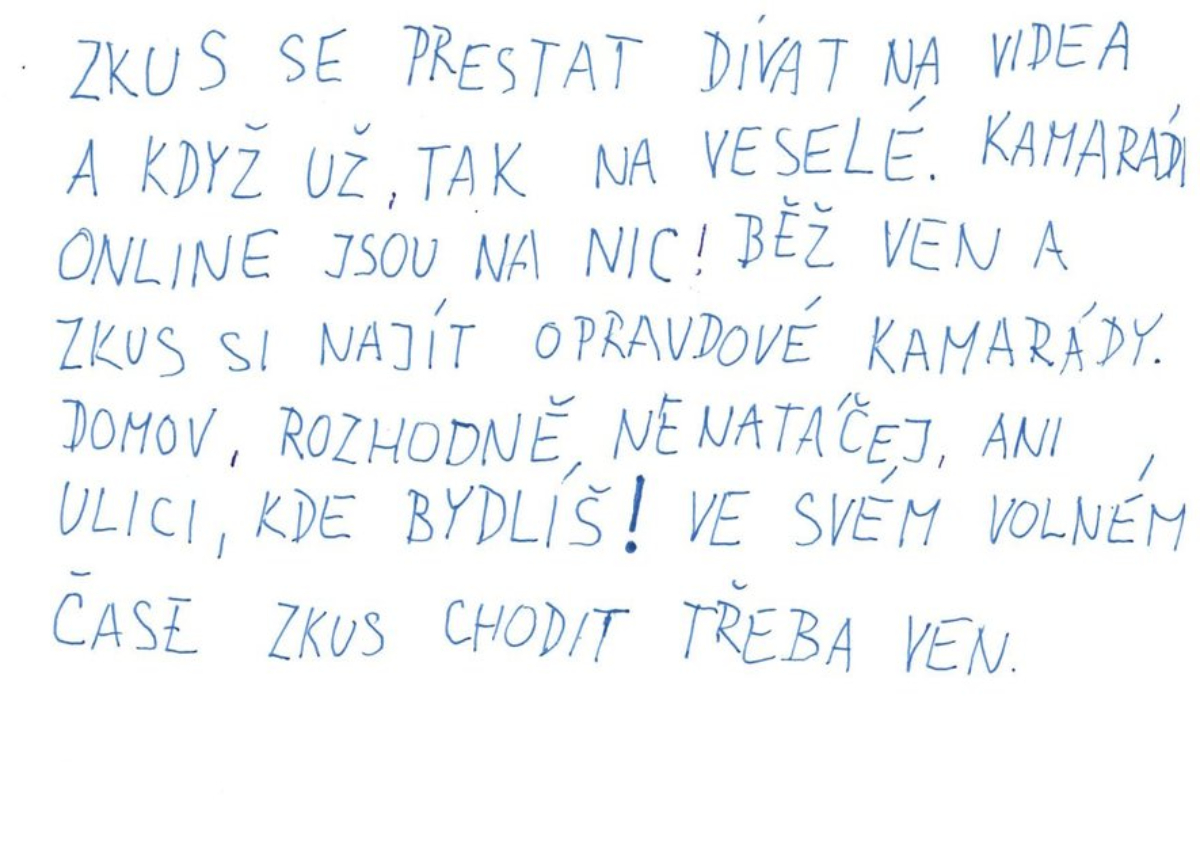 ZKUS SE PRESTAT DÍVAT NA VIDEA
A KDYŽ UŽ, TAK NA VESELÉ. KAMARÁDI
ONLINE JSOU NA NIC! BĚŽ VEN A
ZKUS SI NAJÍT OPRAVDOVÉ KAMARÁDY.
DOMOV, ROZHODNĚ, NENATÁČEJ, ANI
ULICI, KDE BYDLÍŠ! VE SVÉM VOLNÉM
ČASE ZKUS CHODIT TŘEBA VEN.